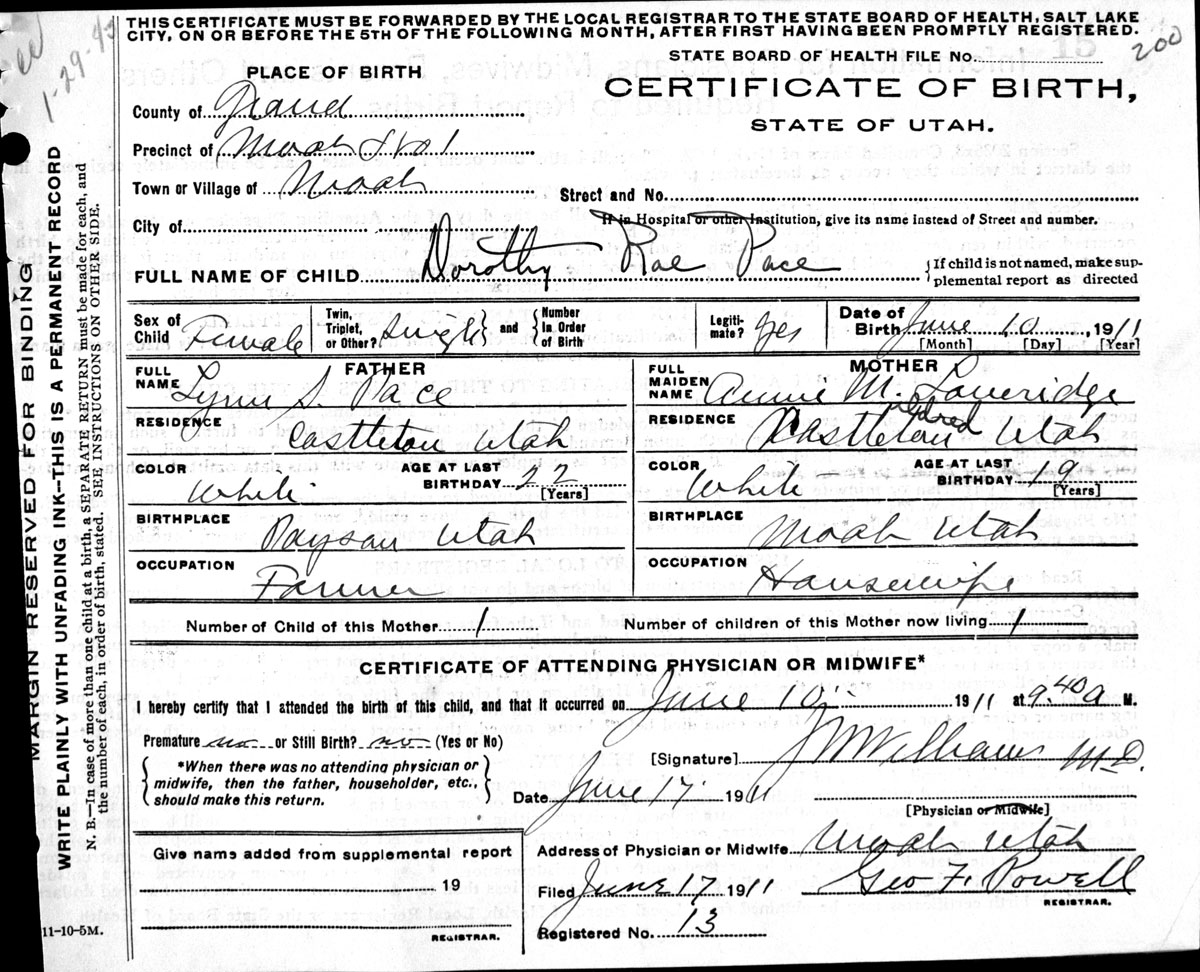 THIS CERTIFICATE MUST BE FORWARDED BY THE LOCAL REGISTRAR TO THE STATE BOARD OF HEALTH, SALT LAKE
CITY, ON OR BEFORE THE 5TH OF THE FOLLOWING MONTH, AFTER FIRST HAVING BEEN PROMPTLY REGISTERED.
1-29-43
STATE BOARD OF HEALTH FILE No. 15 200
PLACE OF BIRTH
CERTIFICATE OF BIRTH,
STATE OF UTAH.
County of Grand
Precinct of Moab
Town or Village of Moab
Street and No.
City of
If in Hospital or other Institution, give its name instead of Street and number.
FULL NAME OF CHILD Dorothy Rae Pace
{If child is not named, make sup-
plemental report as directed
Sex of Child Female
Twin, Triplet, or Other? Single } and { Number In Order of Birth
Legiti-mate? Yes
Date of Birth June 10, 1911
[Month] [Day] [Year]
FATHER
FULL NAME Lynn S. Pace
RESIDENCE Castleton Utah
COLOR White
AGE AT LAST BIRTHDAY 22
[Years]
BIRTHPLACE Payson Utah
OCCUPATION Farmer
MOTHER
FULL MAIDEN NAME Annie M. Loveridge
eldred
RESIDENCE Castleton Utah
COLOR White
AGE AT LAST BIRTHDAY 19
[Years]
BIRTHPLACE Moab Utah
OCCUPATION Housewife
Number of Child of this Mother 1 Number of children of this Mother now living 1
CERTIFICATE OF ATTENDING PHYSICIAN OR MIDWIFE*
I hereby certify that I attended the birth of this child, and that it occurred on June 10 1911 at 9.40 a M.
Premature no or Still Birth? no (Yes or No)
[Signature] J W Williams M.D.
{ *When there was no attending physician or
midwife, then the father, householder, etc.,
should make this return. }
Date June 17. 1911
[Physician or Midwife]
Give name added from supplemental report
19
REGISTRAR.
Address of Physician or Midwife Moab Utah
Filed June 17 1911 Geo F. Powell
REGISTRAR.
Registered No. 13
11-10-5M.
MARGIN RESERVED FOR BINDING
WRITE PLAINLY WITH UNFADING INK—THIS IS A PERMANENT RECORD
N. B.—In case of more than one child at a birth, a SEPARATE RETURN must be made for each, and
the number of each, in order of birth, stated. SEE INSTRUCTIONS ON OTHER SIDE.